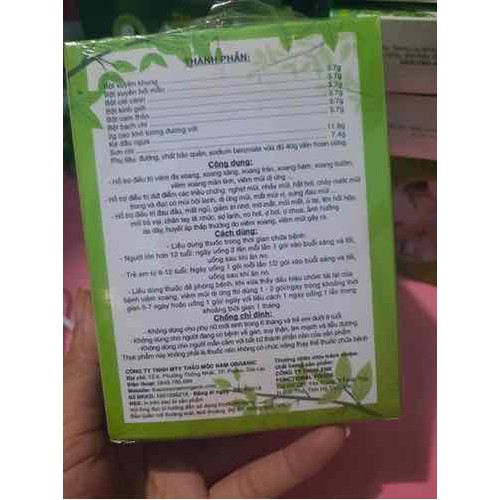 THÀNH PHẦN:
Bột xuyên khung 5.7g
Bột xuyên bối mẫu 5.7g
Bột cát cánh 5.7g
Bột kinh giới 5.7g
Bột cam thảo 5.7g
Bột bạch chỉ 5.7g
2g cao khô tương đương với:
Ké đầu ngựa 11.8g
Sơn chi 7.4g
Phụ liệu: đường, chất bảo quản, sodium benzoate vừa đủ 40g viên hoàn cứng.
Công dụng:
- Hỗ trợ điều trị viêm đa xoang, xoang sàng, xoang trán, xoang hàm, xoang bướm,
viêm xoang mãn tính, viêm mũi dị ứng ...
- Hỗ trợ điều trị dứt điểm các triệu chứng: nghẹt mũi, nhảy mũi, hắt hơi, chảy nước mũi
trong và đục có mùi hôi tanh, dị ứng mũi, mất mùi vị, sưng đau mũi ...
- Hỗ trợ điều trị đau đầu, mất ngủ, giảm trí nhớ, mờ mắt, mỏi mắt, ù tai, tim hồi hộp,
mũi trổ vai, chân tay tê nhức, sợ lạnh, ho hơi, ợ hơi, ợ chua, ảnh hưởng
dạ dày, huyết áp thấp thường do viêm xoang, viêm mũi gây ra.
Cách dùng:
- Liều dùng thuốc trong thời gian chữa bệnh:
- Người lớn hơn 12 tuổi: ngày uống 2 lần mỗi lần 1 gói vào buổi sáng và tối,
uống sau khi ăn no.
- Trẻ em từ 6-12 tuổi: Ngày uống 1 gói mỗi lần 1/2 gói vào buổi sáng và tối,
uống sau khi ăn no.
- Liều dùng thuốc để phòng bệnh: khi vừa thấy dấu hiệu chớm tái lại của
bệnh viêm xoang, viêm mũi dị ứng thì dùng 1 - 2 gói/ngày trong khoảng thời
gian 5-7 ngày hoặc uống 1 gói/ ngày với liều cách 1 ngày uống 1 lần trong
khoảng thời gian 1 tháng.
Chống chỉ định:
- Không dùng cho phụ nữ mới sinh trong 6 tháng và trẻ em dưới 6 tuổi.
- Không dùng cho người đang có bệnh về gan, suy thận, tim mạch và tiểu đường.
- Không dùng cho người mẫn cảm với bất cứ thành phần nào của sản phẩm
Thực phẩm này không phải là thuốc nên không có chức năng thay thế thuốc chữa bệnh
CÔNG TY TNHH MTV THẢO MỘC NAM ORGANIC
Thương nhân chịu trách nhiệm
chất lượng sản phẩm:
CÔNG TY TNHH
FUNCTIONAL FOODS